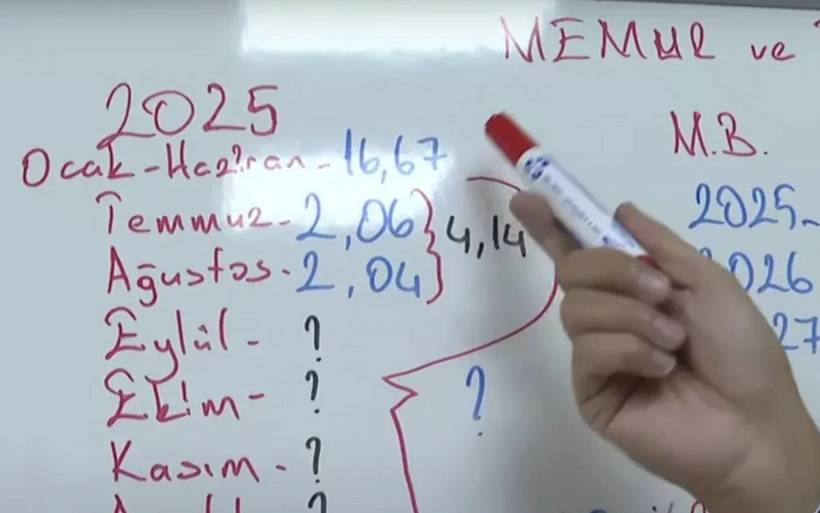 MEMUR ve
2025
Ocak-Haziran-16,67
Temmuz-2,06
Ağustos-2,04
4,14
Eylül- ?
Ekim- ?
Kasım-?
?
?
M.B.
2025-
2026
27